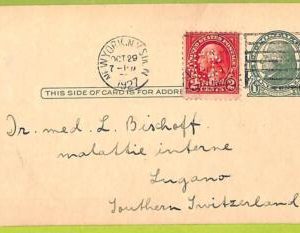 NEW YORK, N.Y. STA. N
OCT 29
7-PM
1927
2 CENTS 2
THIS SIDE OF CARD IS FOR ADDRE
Dr. med. L. Bischoff
malattie interne
Lugano
Southern Switzerland